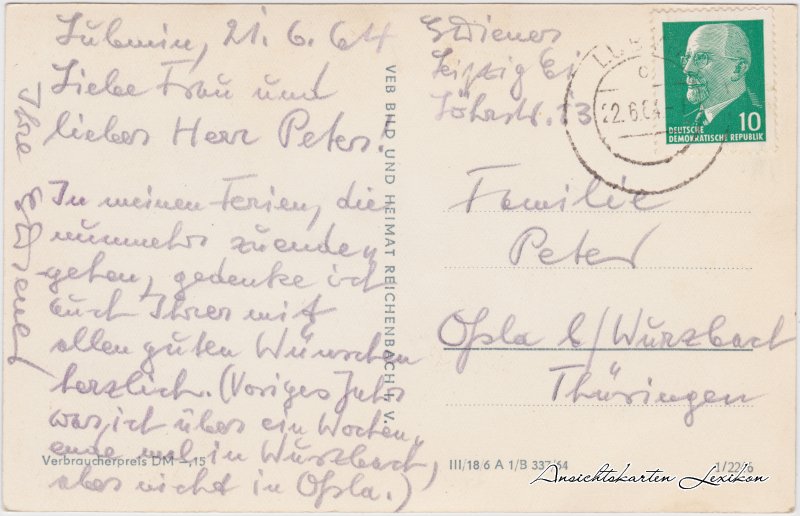 Lubmin, 21.6.64
Liebe Frau und
lieber Herr Peter!
In meinen Ferien, die
nunmehr zuende
gehen, gedenke ich
auch Ihrer mit
allen guten Wünschen
herzlich. (Voriges Jahr
war ich über ein Wochen-
ende mal in Wurzbach,
aber nicht in Oßla.)
Ihre
VEB BILD UND HEIMAT REICHENBACH I. V.
Verbraucherpreis DM -,15
Leipzig
22.6.64
DEUTSCHE
DEMOKRATISCHE REPUBLIK
10
Familie
Peter
Oßla b/Wurzbach
Thüringen
III/18 6 A 1/B 337/64
1/2276
Ansichtskarten Lexikon